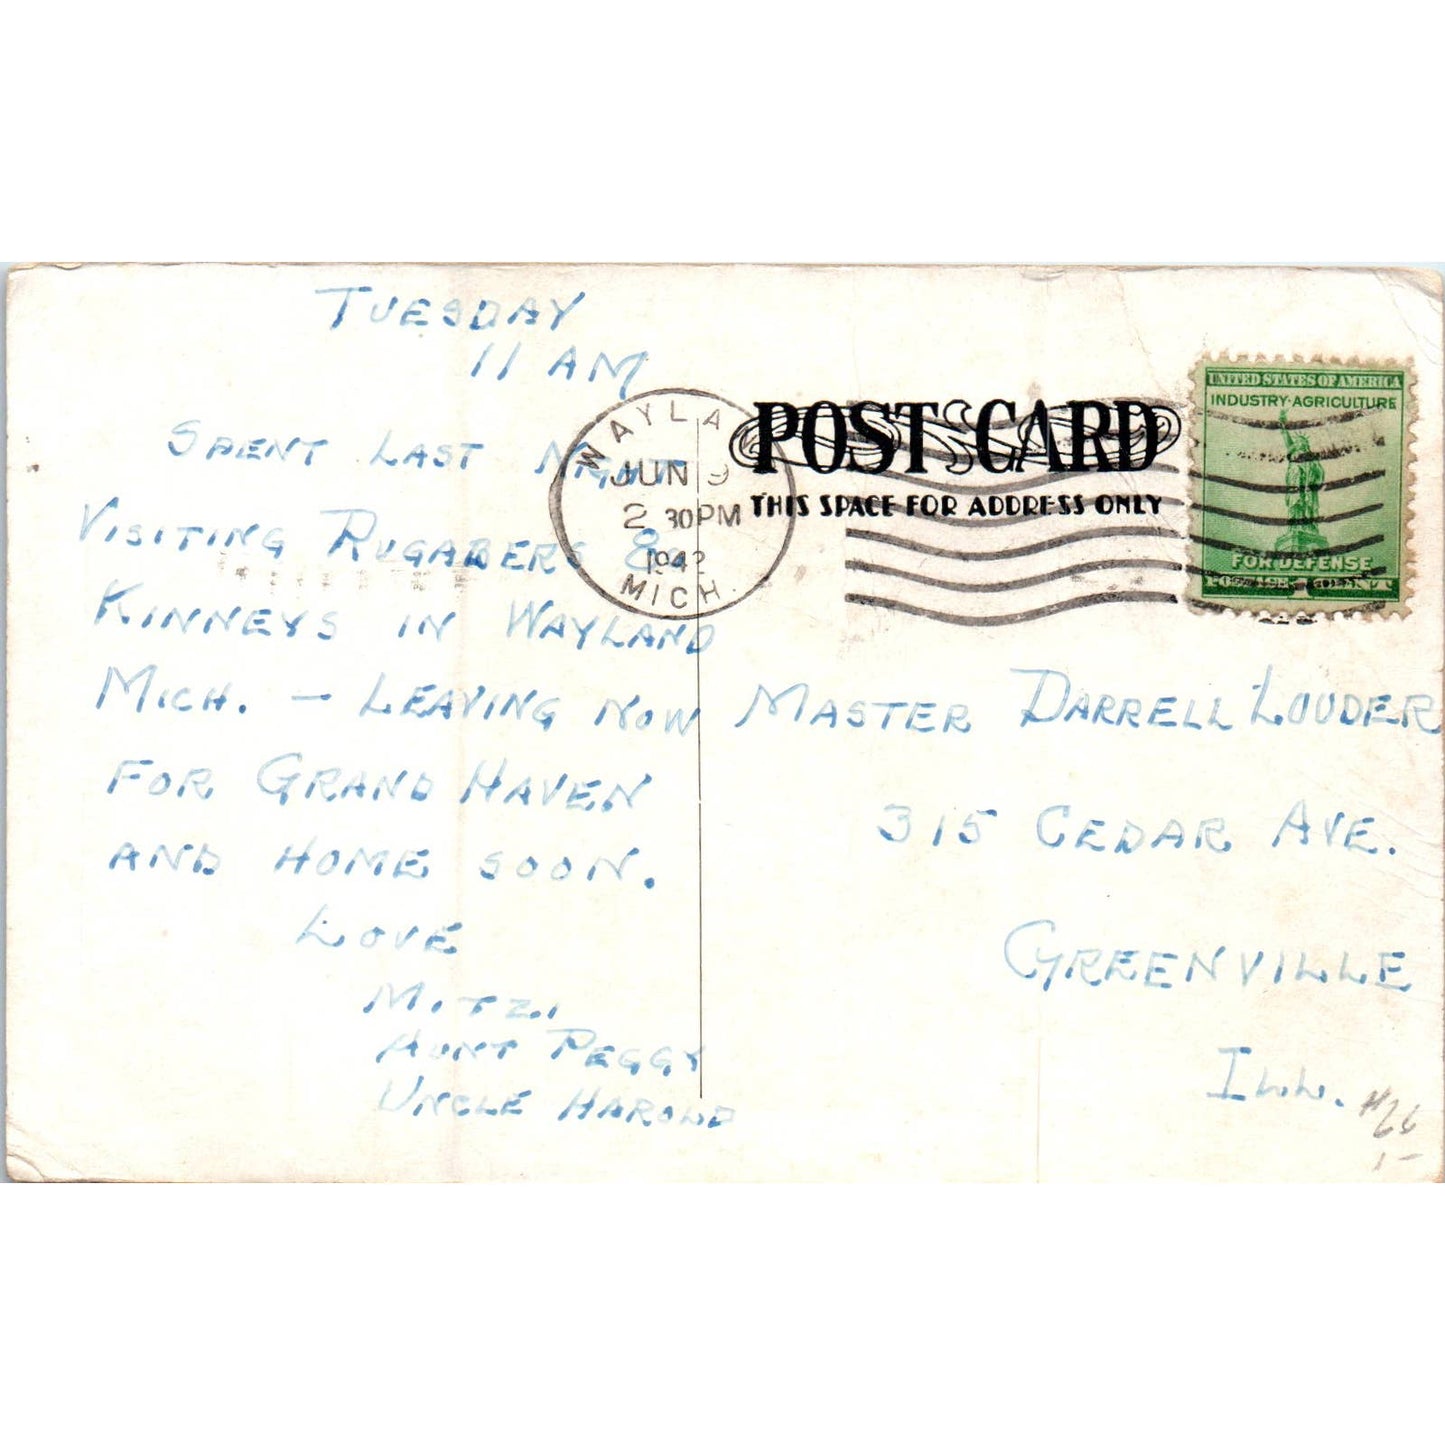 TUESDAY
11 AM
SPENT LAST NIGHT
VISITING RUGABERS &
KINNEYS IN WAYLAND
MICH. — LEAVING NOW
FOR GRAND HAVEN
AND HOME SOON.
LOVE
MITZI
AUNT PEGGY
UNCLE HAROLD
WAYLAND
JUN 9
2 30PM
1942
MICH.
POST CARD
THIS SPACE FOR ADDRESS ONLY
UNITED STATES OF AMERICA
INDUSTRY·AGRICULTURE
FOR DEFENSE
POSTAGE 1 CENT
MASTER DARRELL LOUDER
315 CEDAR AVE.
GREENVILLE
ILL.
#66
1–